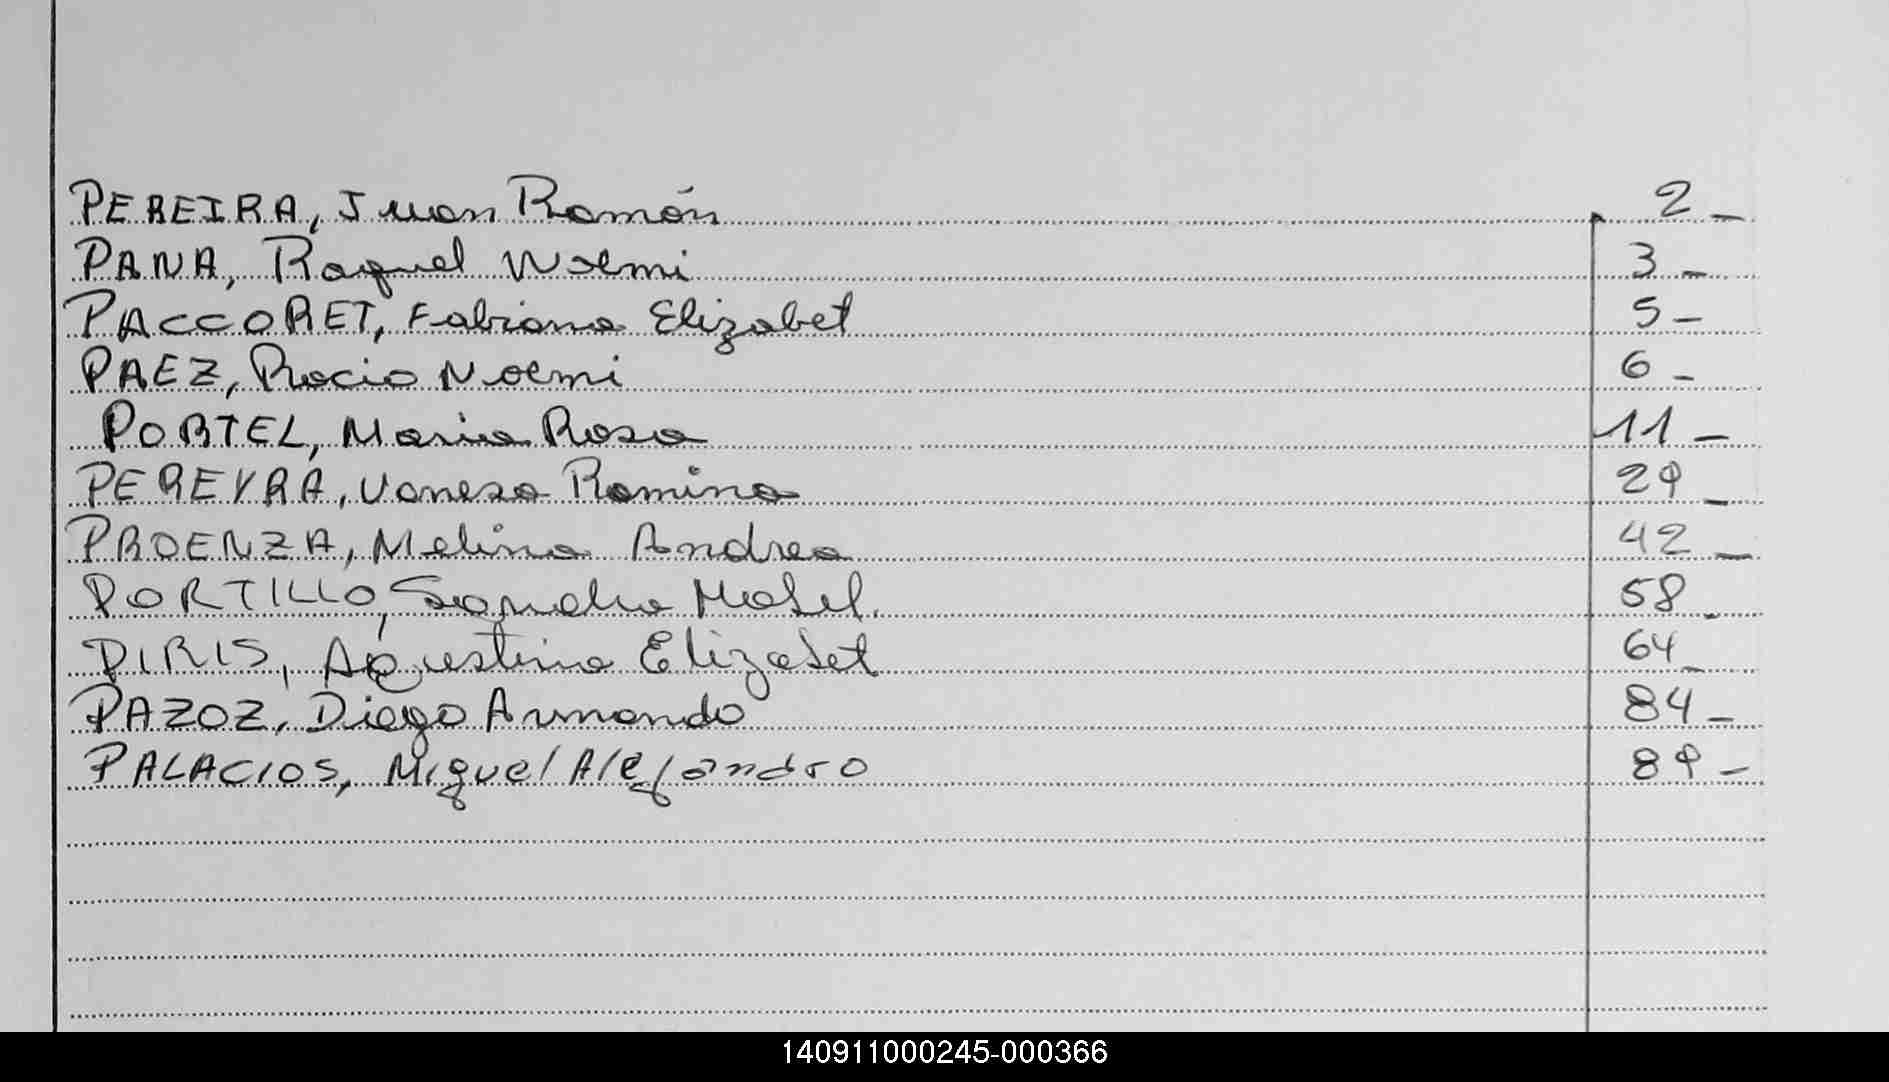 PEREIRA, Juan Ramón 2 _
PANA, Raquel Noemi 3 _
PACCORET, Fabiana Elizabet 5 _
PAEZ, Rocio Noemi 6 _
PORTEL, Maria Rosa 11 _
PEREYRA, Vanesa Romina 29 _
PROENZA, Melina Andrea 42 _
PORTILLO, Mabel. 58 _
PIRIS, Agustina Elizabet 64 _
PAZOZ, Diego Armando 84 _
PALACIOS, Miguel Alejandro 89 _
140911000245-000366